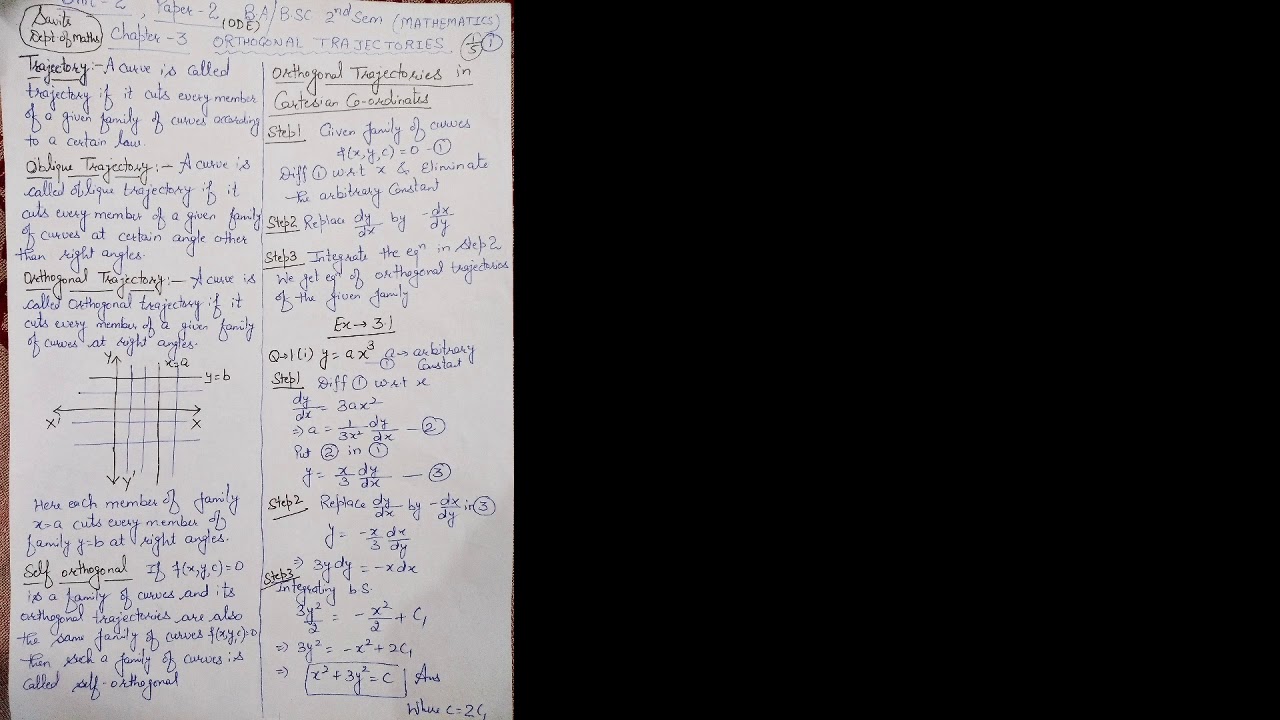 Unit-2, Paper-2 B.A/B.SC 2nd Sem (MATHEMATICS)
(ODE)
Savita
Dept of maths
Chapter-3 ORTHOGONAL TRAJECTORIES. 1/5 ①
Trajectory:- A curve is called
trajectory if it cuts every member
of a given family of curves according
to a certain law.
Oblique Trajectory:- A curve is
called oblique trajectory if it
cuts every member of a given family
of curves at certain angle other
than right angles.
Orthogonal Trajectory:- A curve is
called orthogonal trajectory if it
cuts every member of a given family
of curves at right angles.
Y x=a
y=b
X' X
Y'
Here each member of family
x=a cuts every member of
family y=b at right angles.
Self orthogonal If f(x,y,c)=0
is a family of curves and its
orthogonal trajectories are also
the same family of curves f(x,y,c)=0
then such a family of curves is
called self-orthogonal
Orthogonal Trajectories in
Cartesian Co-ordinates
Step1 Given family of curves
f(x,y,c)=0 -①
Diff ① wrt x & Eliminate
the arbitrary Constant
Step2 Replace dy/dx by -dx/dy
Step3 Integrate the eqn in Step2
We get eqn of orthogonal trajectories
of the given family
Ex→3.1
Q→1(i) y=ax³ a→arbitrary
—① Constant
Step1 Diff ① wrt x
dy/dx = 3ax²
⇒ a = 1/3x² dy/dx —②
Put ② in ①
y = x/3 dy/dx —③
Step2 Replace dy/dx by -dx/dy in ③
y = -x/3 dx/dy
⇒ 3y dy = -x dx
Step3
Integrating b.s.
3y²/2 = -x²/2 + C₁
⇒ 3y² = -x² + 2C₁
⇒ x²+3y²=C Ans
Where C=2C₁